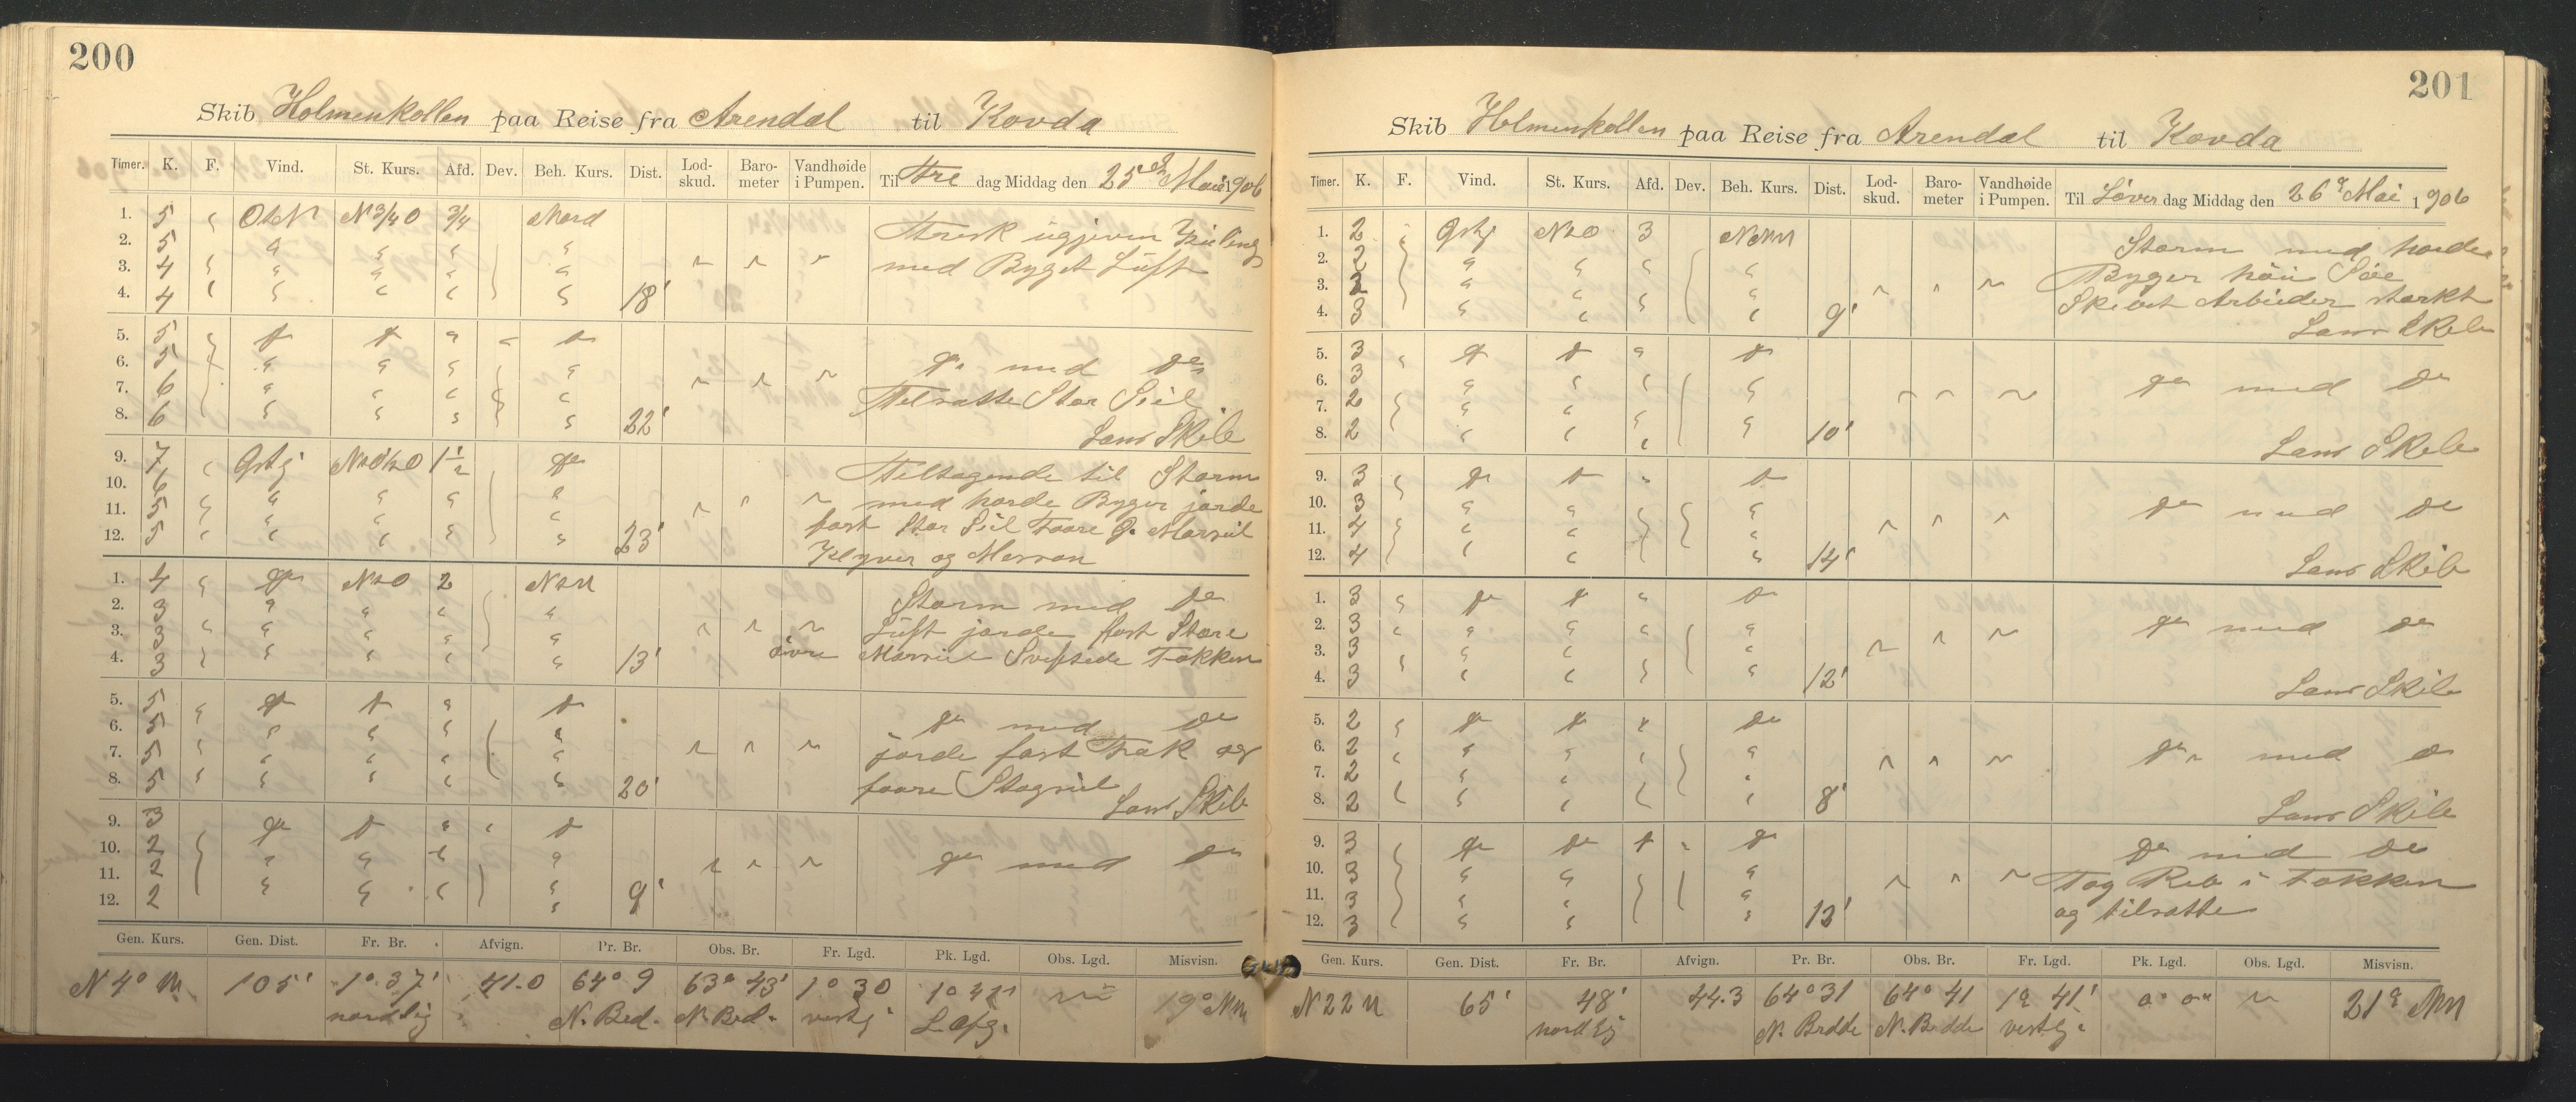 200
Skib Holmenkollen paa Reise fra Arendal til Kovda
Timer. K. F. Vind. St. Kurs. Afd. Dev. Beh. Kurs. Dist. Lod-skud. Baro-meter Vandhøide i Pumpen. Til Fre dag Middag den 25de Mai 1906
1. 5 " OtN N 3/4 O 3/4 Nord
2. 5 " " " "
3. 4 " " " " "
4. 4 " " " " " 18'
Frisk
med Byget Luft
5. 5 " do do " " do
6. 5 " " " "
7. 6 " " " "
8. 6 " " " " 22'
do med do
Tilsatte Stor Seil
Lens Skib
9. 7 " 1 1/2 do
10. 6 " " " "
11. 5 " " " " "
12. 5 " " " " " 23'
Tiltagende til Storm
med haarde Byger jorde
fast Stor Seil
Klyver og Mesan
1. 4 " do NtO 2 NtW
2. 3 " " " "
3. 3 " " " " "
4. 3 " " " " " 13'
Storm med do
Luft jorde fast Store
øvre Mersseil Fokken
5. 5 " do do " do
6. 5 " " " "
7. 5 " " " " "
8. 5 " " " " " 20'
do med do
jorde fast Fok og
faare Stagseil
Lens Skib
9. 3 do do " " do
10. 2 " " " "
11. 2
12. 2 " " " " 9'
do med do
Gen. Kurs. Gen. Dist. Fr. Br. Afvign. Pr. Br. Obs. Br. Fr. Lgd. Pk. Lgd. Obs. Lgd. Misvisn.
N 4° W 105' 1° 37' 41.0 64° 9 63° 43' 1° 30 19° NW
nordlig N. Bred. N. Bred. vestlg.
201
Skib Holmenkollen paa Reise fra Arendal til Kovda
Timer. K. F. Vind. St. Kurs. Afd. Dev. Beh. Kurs. Dist. Lod-skud. Baro-meter Vandhøide i Pumpen. Til Løver dag Middag den 26de Mai 1906
1. 2 NtO 3 NNW
2. 2 " " " "
3. 2 " "
4. 3 " " " " 9'
Storm med haarde
Byger høi Søe
Skibet Arbeider stærkt
Lens Skib
5. 3 " do do " do
6. 3 " " " "
7. 2 "
8. 2 " " " " 10'
do med do
Lens Skib
9. 3 " do do " do
10. 3 " " "
11. 4 " " "
12. 4 " " " 14'
do med do
Lens Skib
1. 3 " do do " do
2. 3 " " " " "
3. 3 " " "
4. 3 " " " " 12'
do med do
Lens Skib
5. 2 " do do do do
6. 2 " " " " "
7. 2 "
8. 2 " " " " 8'
do med do
Lens Skib
9. 3 do do do " do
10. 3 " " "
11. 3 " " "
12. 3 " " " 12'
do med do
Tog Reb i Fokken
og tilsatte
Gen. Kurs. Gen. Dist. Fr. Br. Afvign. Pr. Br. Obs. Br. Fr. Lgd. Pk. Lgd. Obs. Lgd. Misvisn.
N 22 W 65' 48' 44.3 64° 31 64° 41 1° 41' 21° NW
nordlg N. Bredde N. Bredde vestlg.